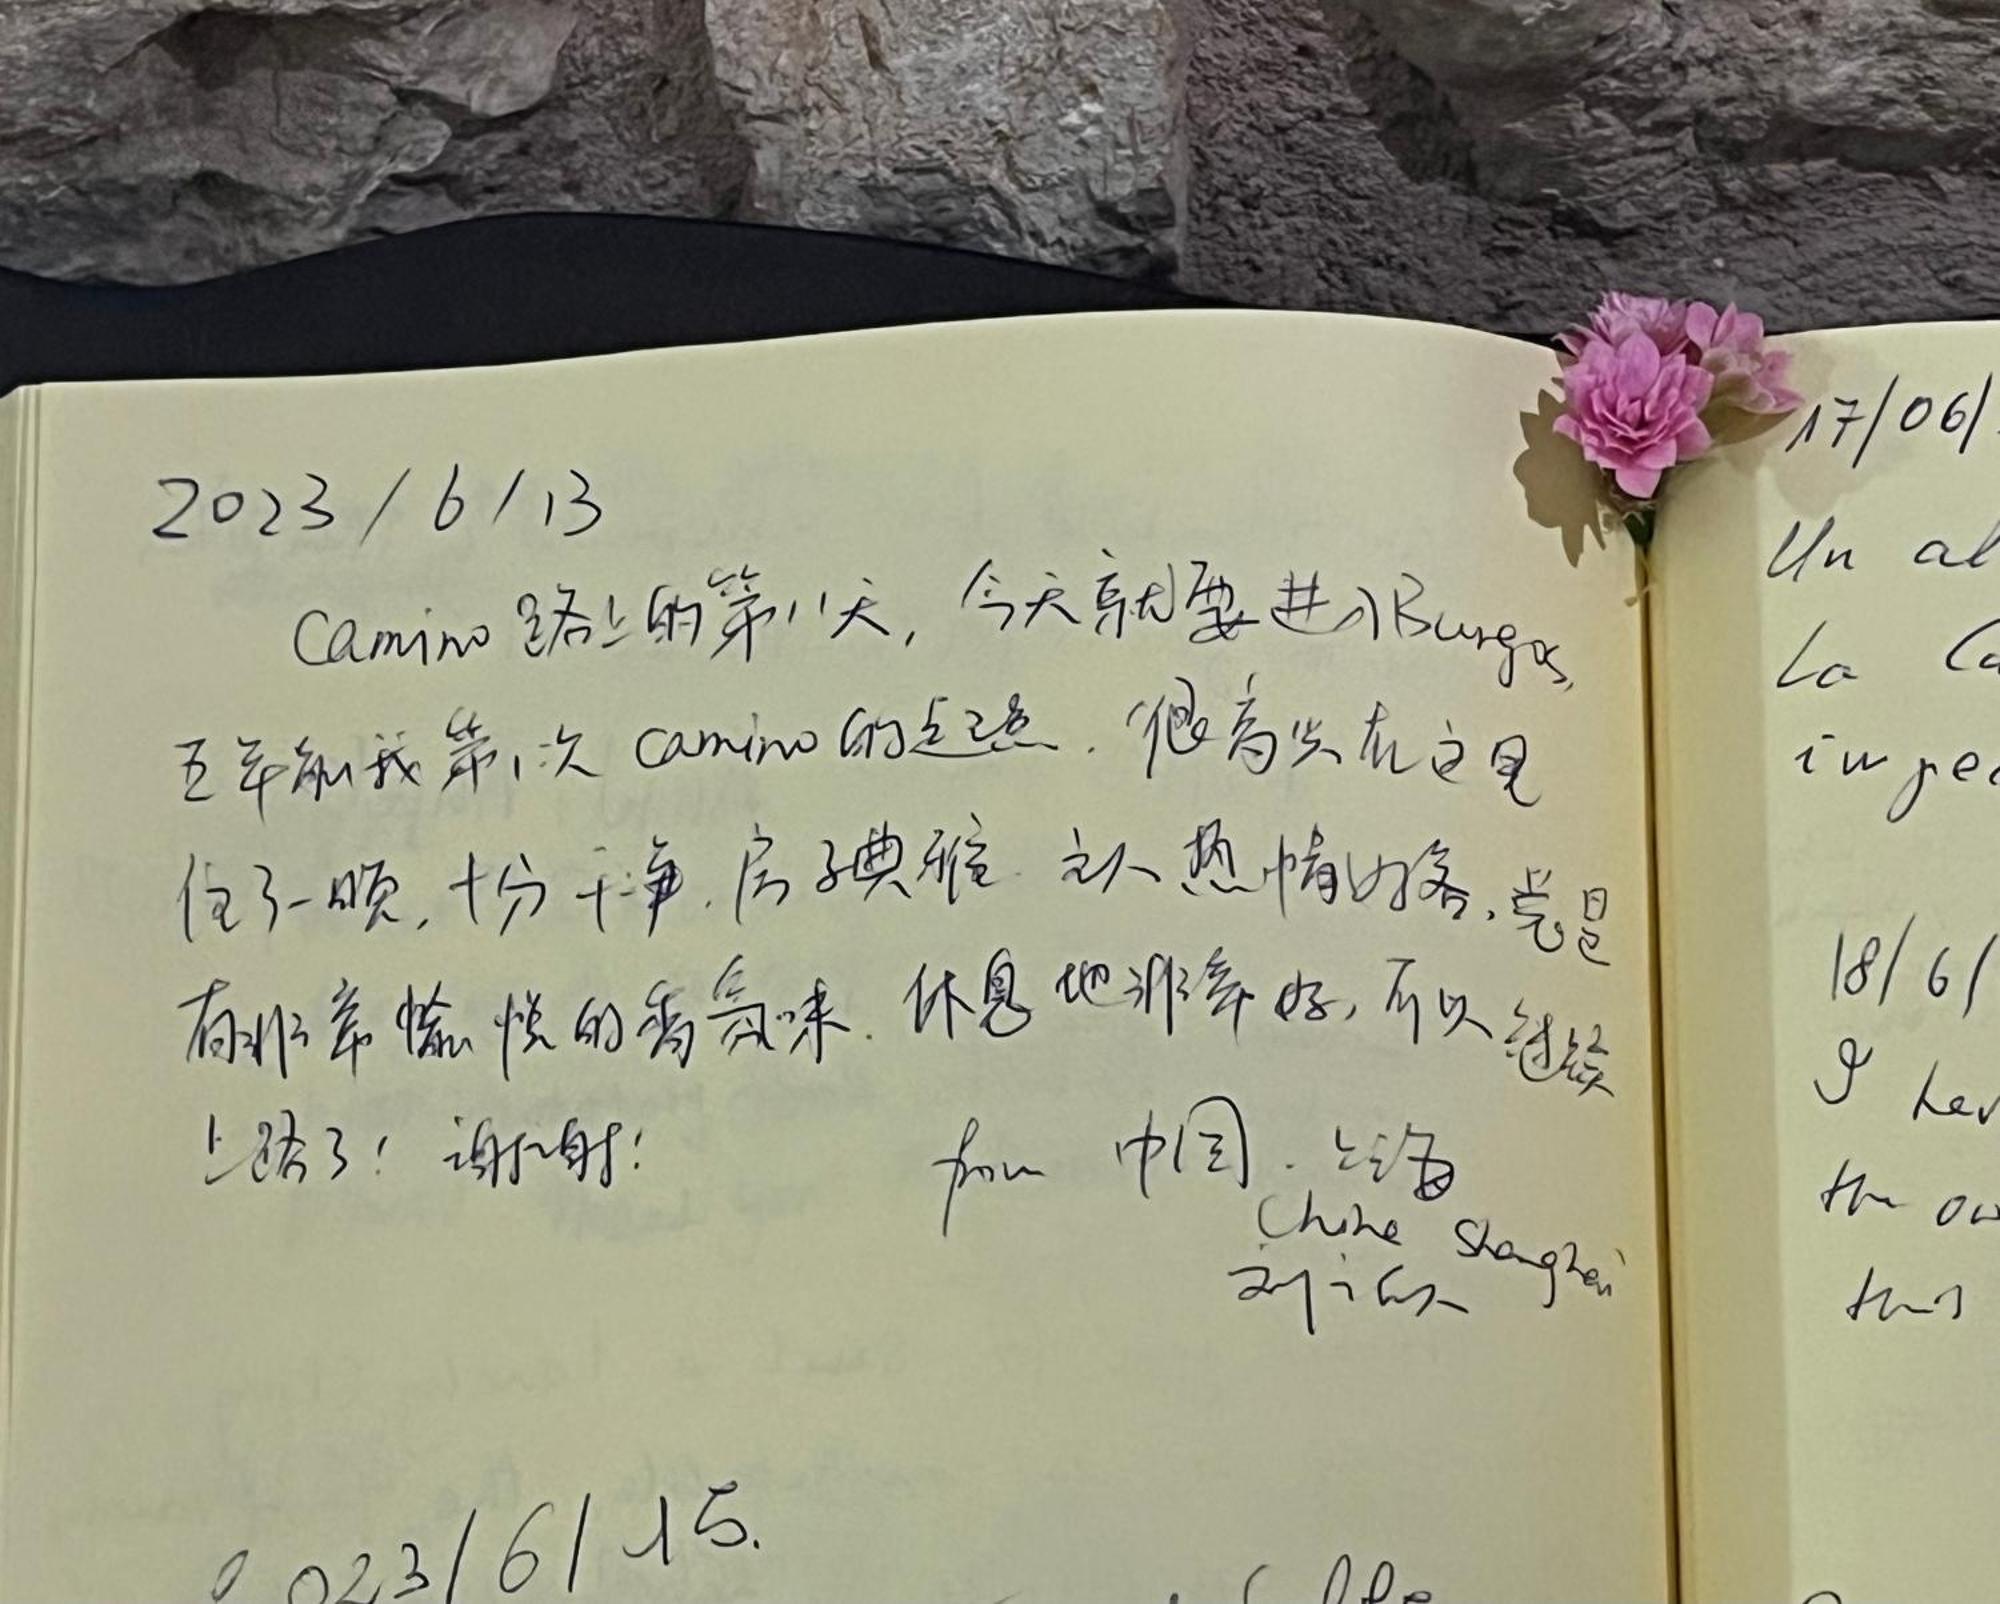 2023/6/13
Camino路上的第11天，今天就要进入Burgos,
五年前我第1次Camino的起点．很高兴在这里
住了一晚，十分干净．房子典雅．主人热情好客，总是
有非常愉悦的香氛味．休息地非常好，可以继续
上路了！谢谢！
from 中国．上海
China Shanghai
2023/6/15.
17/06/
Un al
La Ca
18/6/
I hav
the ow
this